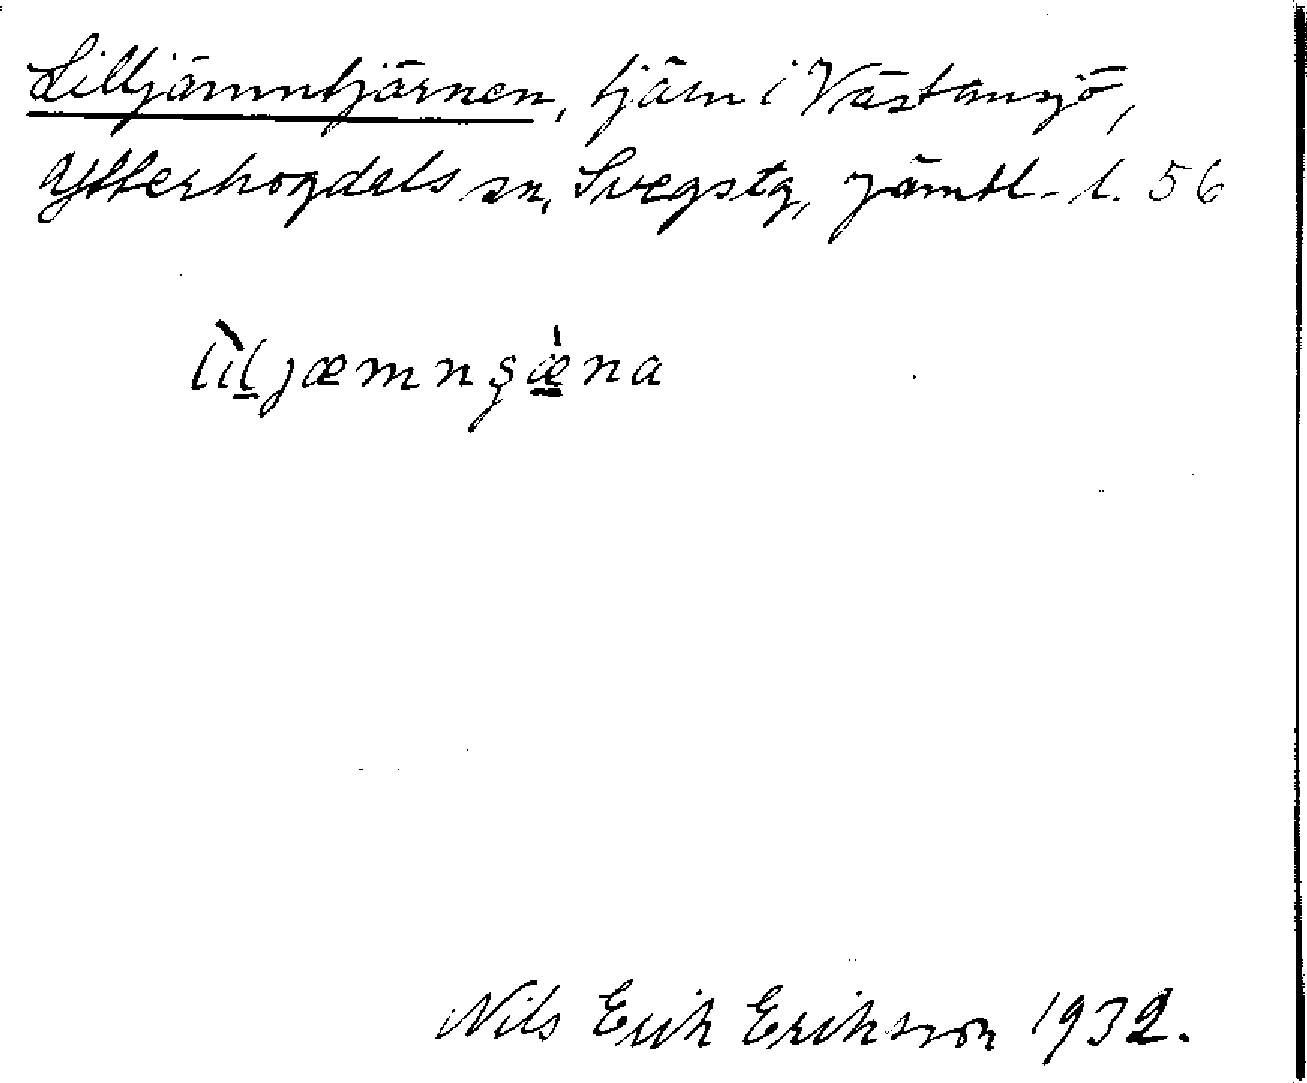 Lilljämntjärnen, tjärn i Västansjö,
Ytterhogdals sn, Svegstg, Jämtl. l. 56
lìl̲jæmnşæ̲̀na
Nils Erik Erikson 1932.